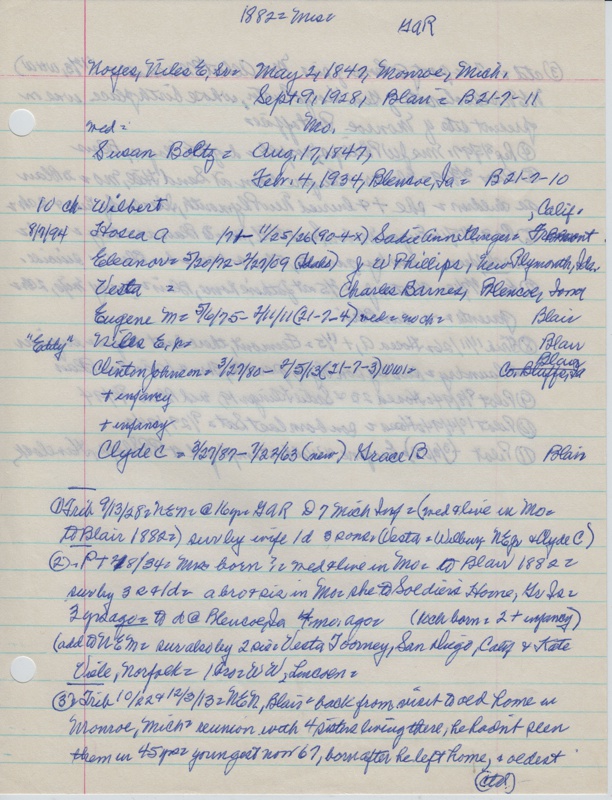 1882 = Mis=
GAR
Noyes, Niles E, Sr = May 2, 1847, Monroe, Mich.
Sept. 9, 1928, Blair = B21-7-11
med = Mo.
Susan Boltz = Aug. 17, 1847,
Feb. 4, 1934, Blencoe, Ia = B21-7-10
10 ch- Wilbert , Calif.
8/7/94 Hosea A 11/25/26 (90-4-x) Sadie Ann = Fremont
Eleanor = 5/20/72 - 2/27/09 J W Phillips, New Plymouth, Ida.
Vesta = Charles Barnes, Blencoe, Iowa
Eugene M = 5/6/75 - 2/11/11 (21-7-4) med = no ch = Blair
"Eddy" Niles E, Jr = Blair
Blair
Clinton Johnson = 3/27/80 - 2/5/13 (21-7-3) WW1 = Co. Bluffs, Ia
+ infancy
+ infancy
Clyde C = 3/27/87 - 7/22/63 (new) Grace B Blair
① Trib 9/13/28 = N E N = @ 16 yr = GAR D 7 Mich Inf = (med & live in Mo =
to Blair 1882 =) sur by wife 1 d 3 sons = (Vesta = Wilbur, N E Jr & Clyde C)
② = P + 2/8/34 = Mrs = born = med & live in Mo = to Blair 1882 =
sur by 3 s & 1 d = a bro & sis in Mo = she to Soldiers Home, Gr Is =
3 yrs ago = to d @ Blencoe, Ia 4 mo. ago = (10 ch born = 2 + infancy)
(add to N E N = sur also by 2 sis = Vesta Toomey, San Diego, Calif & Kate
Vaile, Norfolk = 1 bro = W W, Lincoln =
③ Trib 10/22 & 12/3/13 = N E N, Blair = back from visit to old home in
Monroe, Mich = reunion with 4 sisters living there, he hadn't seen
them in 45 yrs = youngest now 67, born after he left home, & oldest
(ctd.)